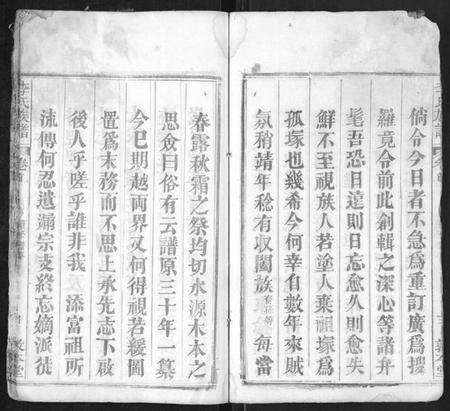 倘令今日者不急為重訂廣為搜
羅竟令前此創輯之深心等諸弁
髦吾恐日遠則日忘愈久則愈失
鮮不至視族人若塗人棄祖塚為
孤塚也幾希今何幸自數年來賊
氛稍靖年稔有収闔族每當
春露秋霜之祭均切水源木本之
思僉曰俗有云譜原三十年一葺
今巳期越兩界又何得視若緩圖
置為末務而不思上承先志下啟
後人乎嗟乎誰非我 添富祖所
流傳何忍遺漏宗支終忘嫡派徒
李氏族譜